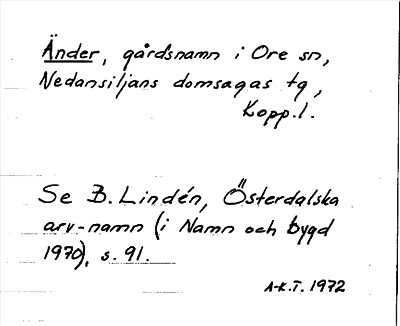 Änder, gårdsnamn i Ore sn,
Nedansiljans domsagas tg,
Kopp.l.
Se B. Lindén, Österdalska
arv-namn (i Namn och bygd
1970), s. 91.
A-K.T. 1972